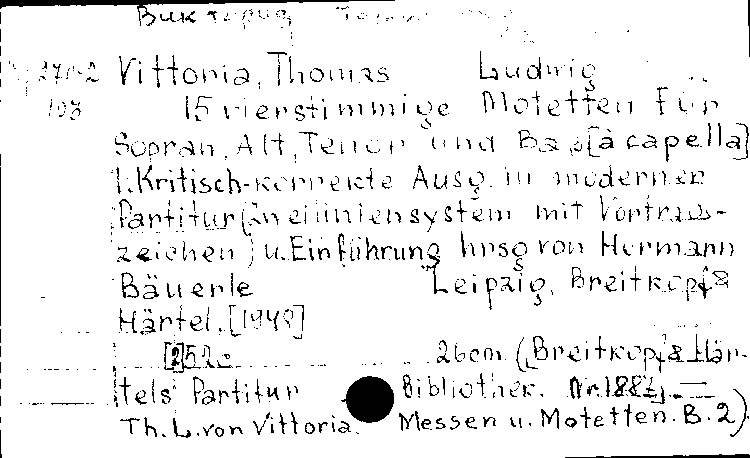 Виктория
Vittoria, Thomas Ludwig
103 15 vierstimmige Motetten für
Sopran, Alt, Tenor und Bass [à capella]
1. Kritisch-korrekte Ausg. in moderner
Partitur (Zweiliniensystem mit Vortrags-
zeichen) u. Einführung hrsg von Hermann
Bäuerle Leipzig, Breitkopf &
Härtel, [19
26cm (Breitkopf & Här-
tels Partitur Bibliothek. Nr.1882.—
Th. L. von Vittoria. Messen u. Motetten. B. 2)